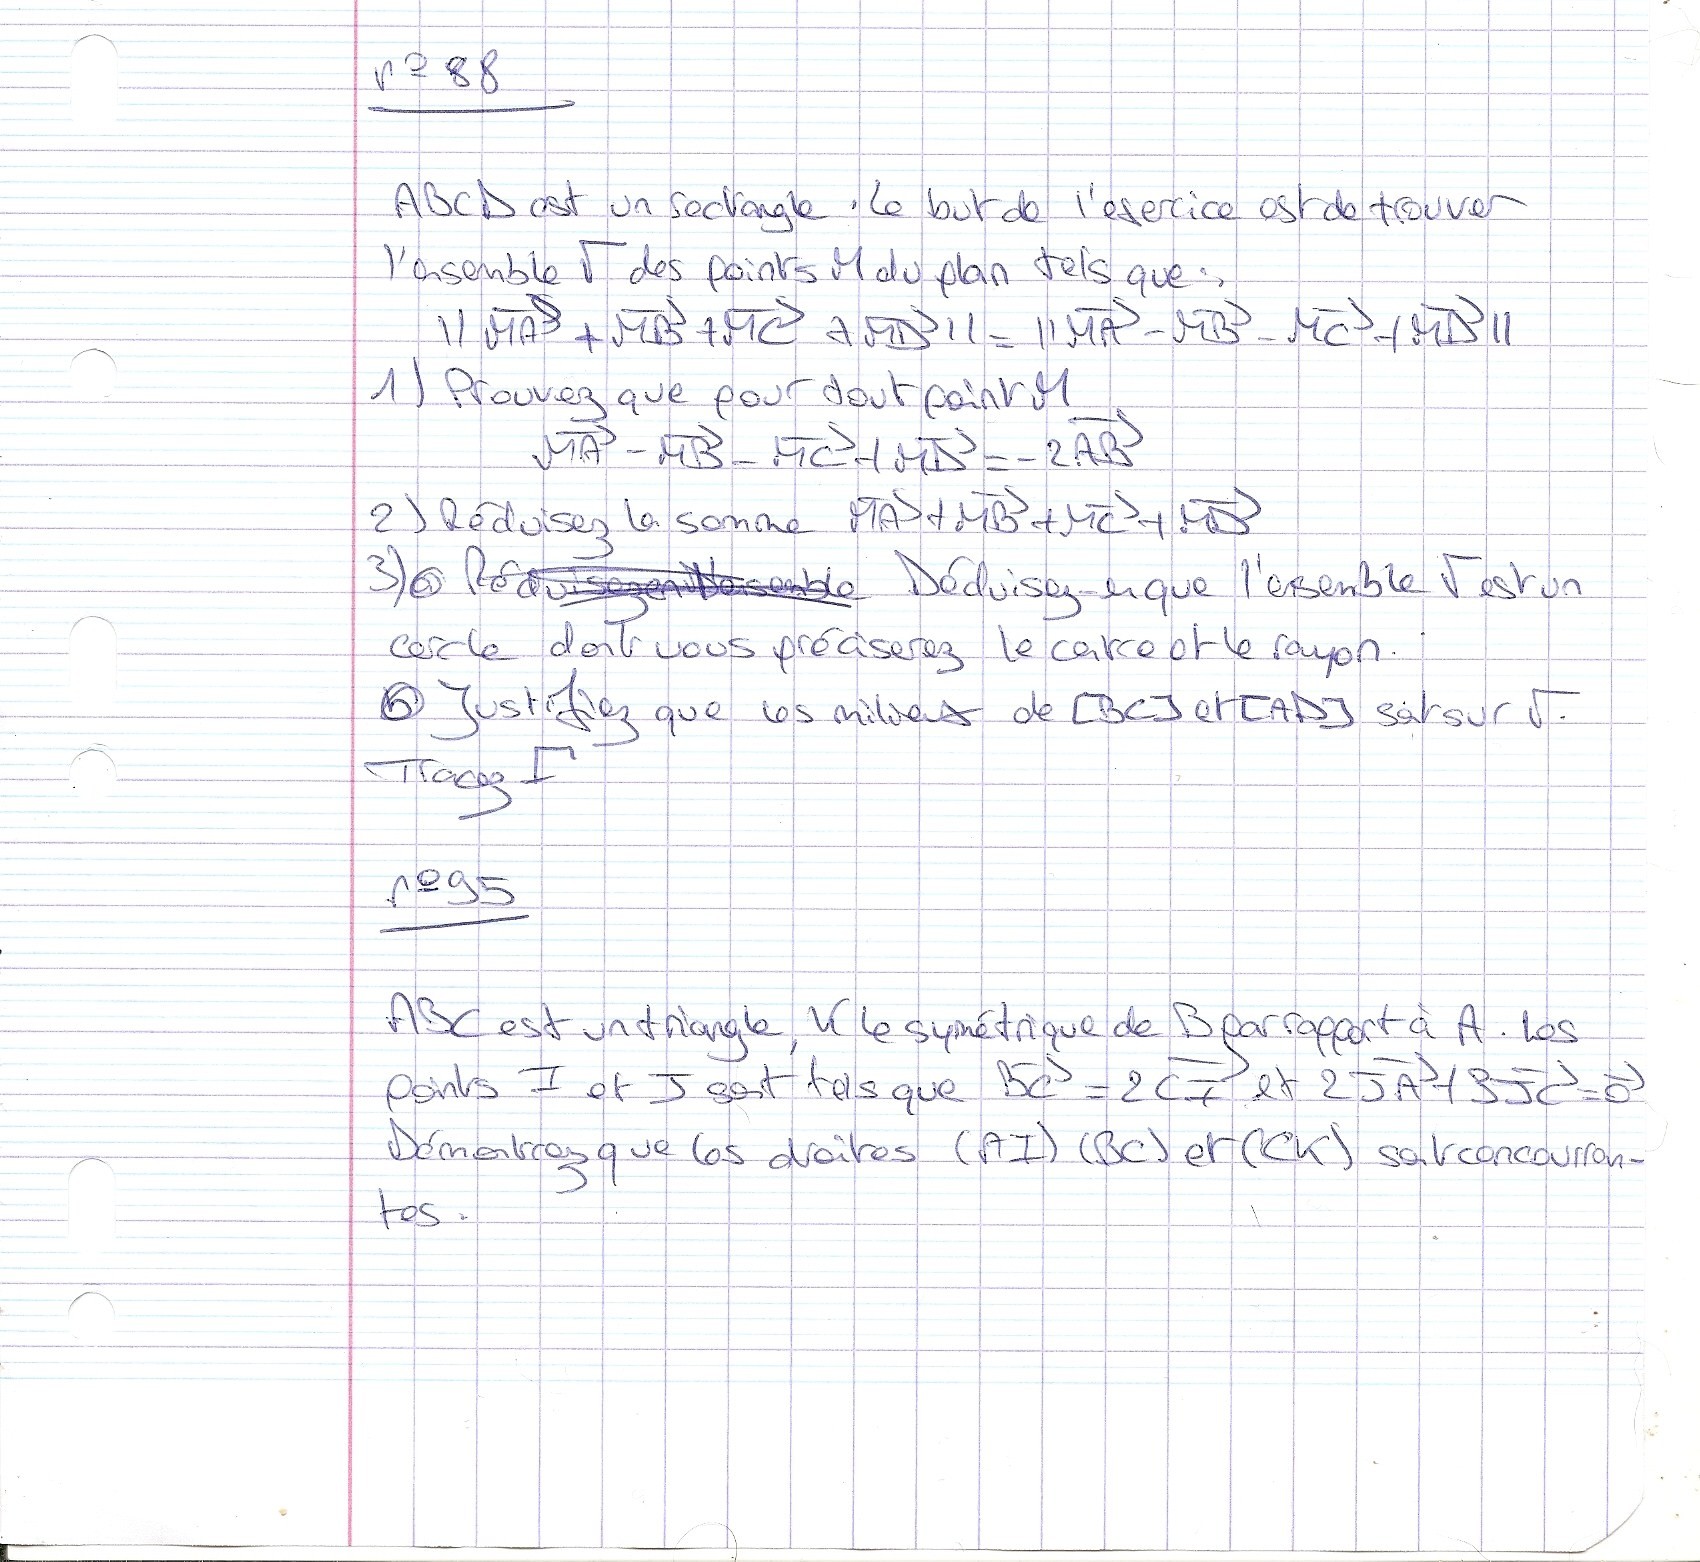 n° 88
ABCD est un rectangle. Le but de l'exercice est de trouver
l'ensemble Γ des points M du plan tels que :
||MA→ + MB→ + MC→ + MD→|| = ||MA→ - MB→ - MC→ + MD→||
1) Prouvez que pour tout point M
MA→ - MB→ - MC→ + MD→ = -2AB→
2) Réduisez la somme MA→ + MB→ + MC→ + MD→
3) a Déduisez-en que l'ensemble Γ est un
cercle dont vous préciserez le centre et le rayon.
b Justifiez que les milieux de [BC] et [AD] sont sur Γ.
Tracez Γ
n° 95
ABC est un triangle, K le symétrique de B par rapport à A. Les
points I et J sont tels que BC→ = 2CI→ et 2JA→ + 3JC→ = 0→
Démontrez que les droites (AI) (BC) et (CK) sont concouran-
tes.